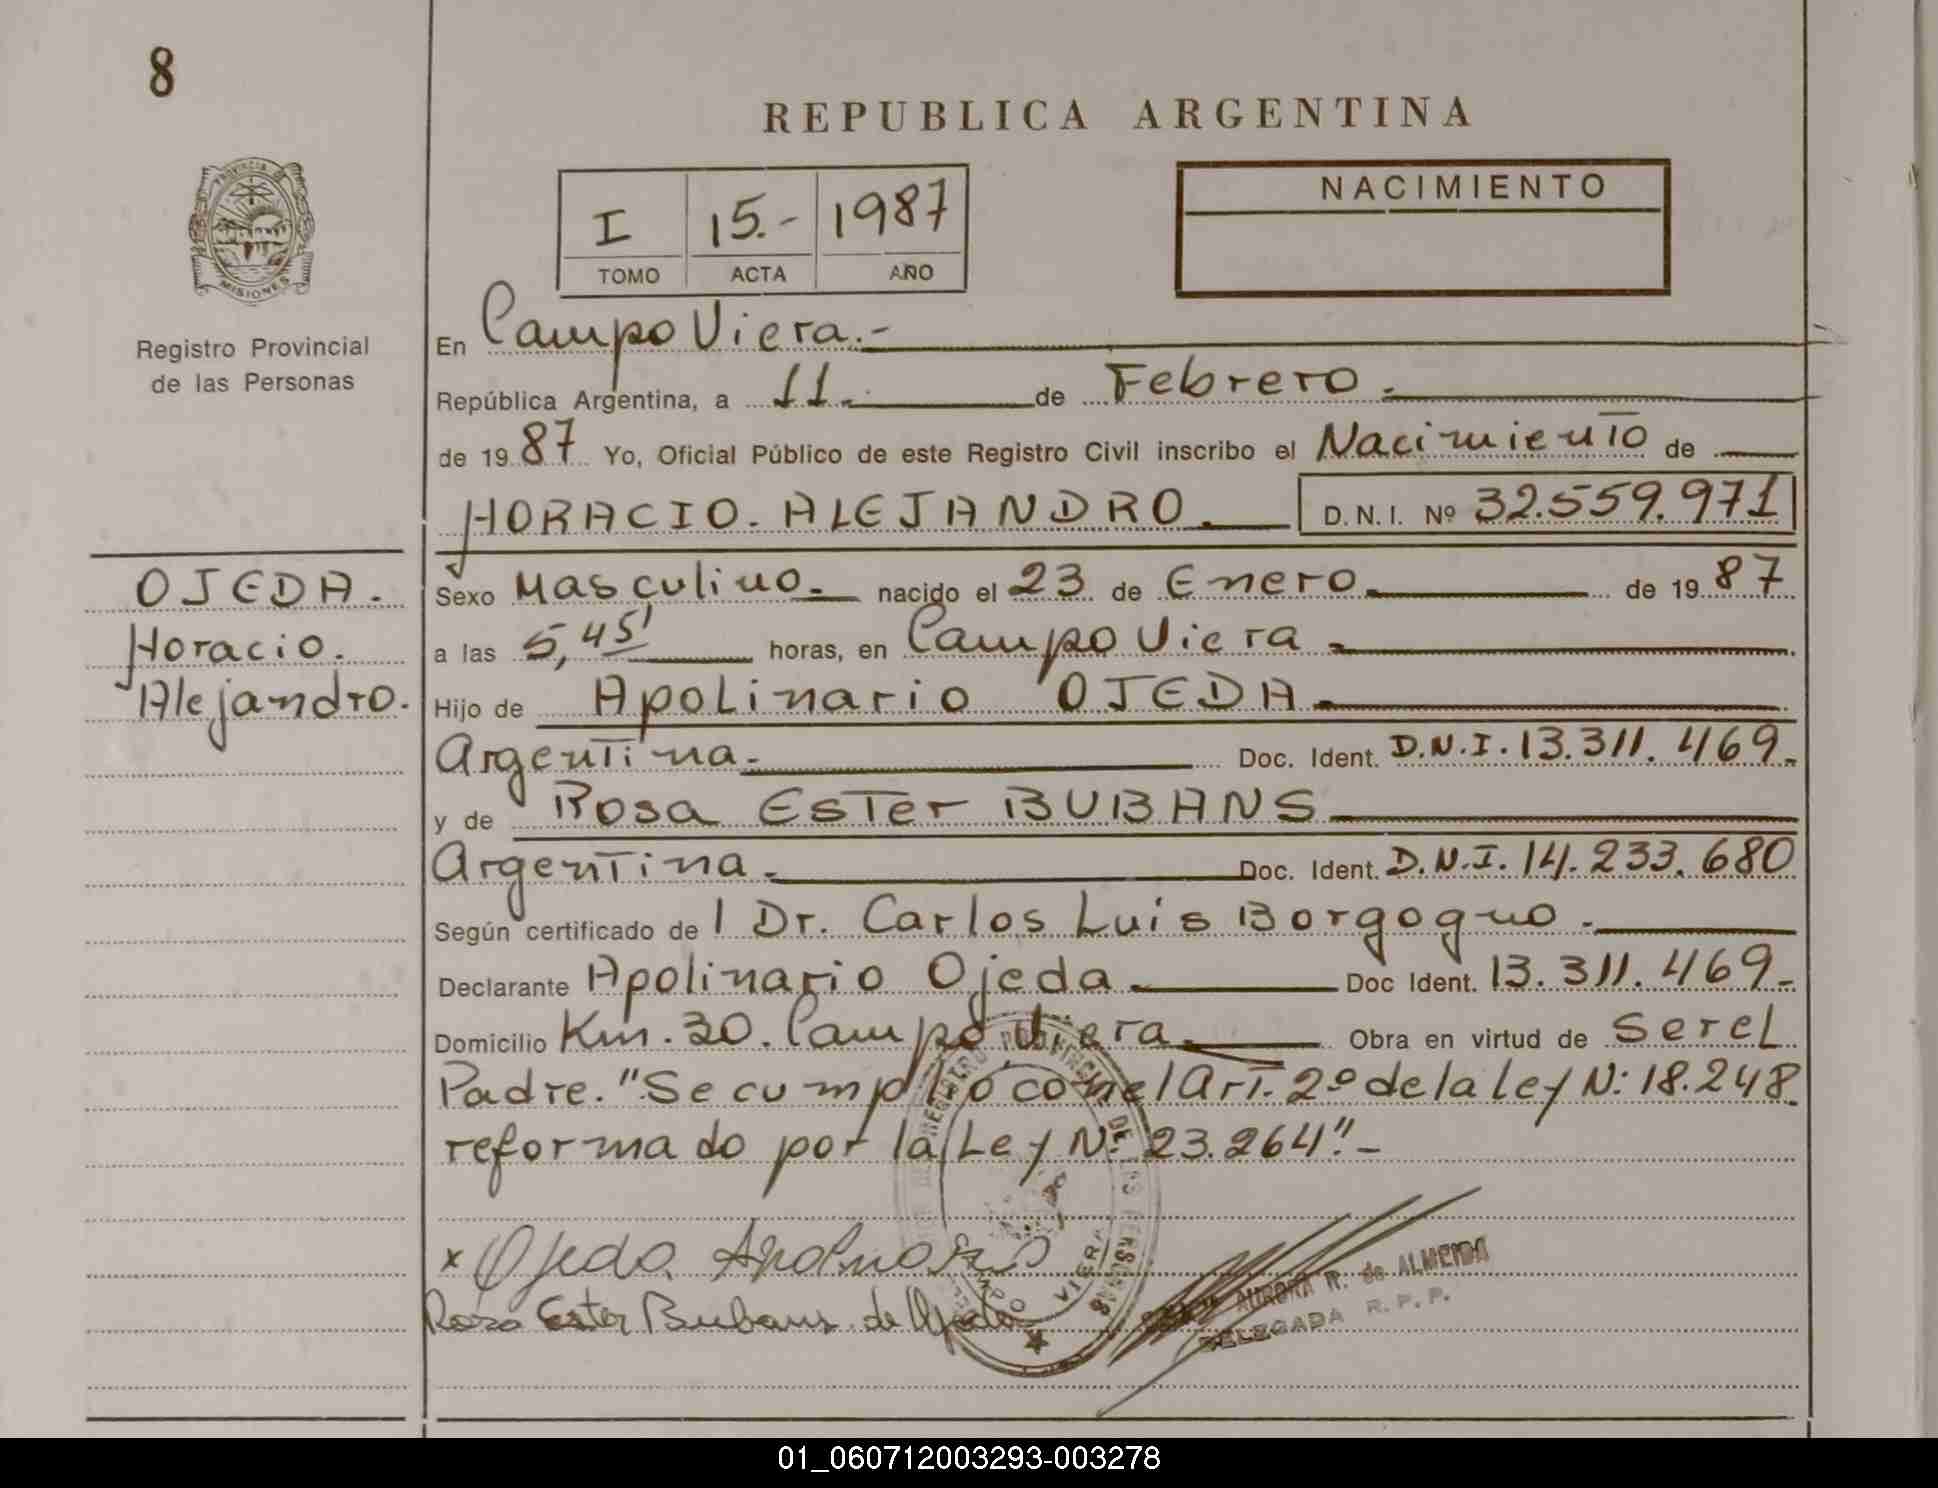 8
REPUBLICA ARGENTINA
PROVINCIA DE
MISIONES
Registro Provincial
de las Personas
I 15.- 1987
TOMO ACTA AÑO
NACIMIENTO
En Campo Viera.-
República Argentina, a 11.- de Febrero.
de 1987 Yo, Oficial Público de este Registro Civil inscribo el Nacimiento de
HORACIO. ALEJANDRO. D.N.I. Nº 32.559.971
OJEDA.
Horacio.
Alejandro.
Sexo Masculino.- nacido el 23 de Enero de 1987
a las 5,45' horas, en Campo Viera
Hijo de Apolinario OJEDA
Argentina.- Doc. Ident. D.N.I. 13.311.469.-
y de Rosa Ester BUBANS
Argentina.- Doc. Ident. D.N.I. 14.233.680
Según certificado de l Dr. Carlos Luis Borgogno.-
Declarante Apolinario Ojeda.- Doc Ident. 13.311.469.-
Domicilio Km. 30. Campo Viera.- Obra en virtud de ser el
Padre. "Se cumplió con el Art. 2º de la Ley N: 18.248
reformado por la Ley Nº 23.264".-
x Ojeda Apolinario
Rosa Ester Bubans de Ojeda
REGISTRO PROVINCIAL DE LAS PERSONAS
CAMPO VIERA
AURORA R. de ALMEIDA
DELEGADA R.P.P.
01_060712003293-003278